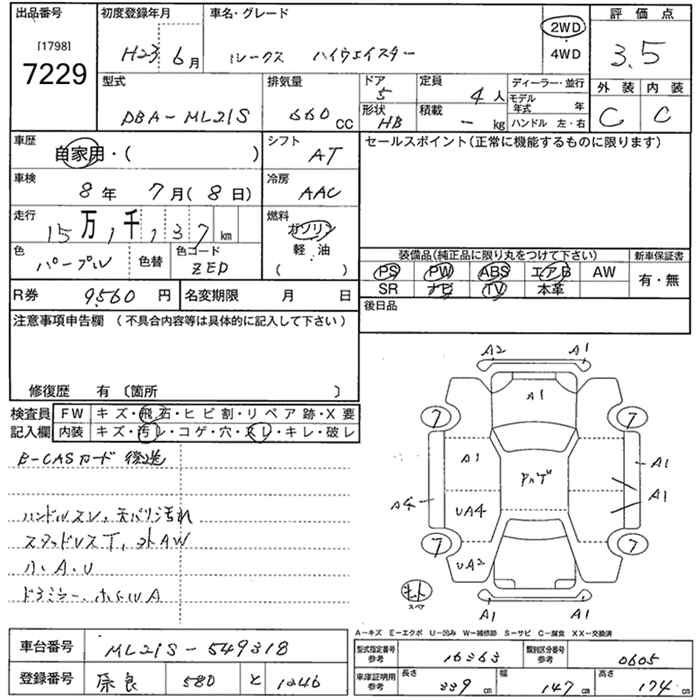 出品番号
[1798]
7229
初度登録年月
H23 6月
車名・グレード
ルークス ハイウェイスター
2WD
・
4WD
評価点
3.5
外装 内装
C C
型式
DBA-ML21S
排気量
660 CC
ドア
5
形状
HB
定員
4人
積載
- kg
ディーラー・並行
モデル年式 年
ハンドル 左・右
車歴
自家用・( )
シフト
AT
車検
8年 7月(8日)
冷房
AAC
走行
15万1千137km
燃料
ガソリン
軽・油
( )
色
パープル
色替
色コード
ZED
R券 9,560円
名変期限 月 日
セールスポイント(正常に機能するものに限ります)
装備品(純正品に限り丸をつけて下さい)
新車保証書
PS PW ABS エアB AW
SR ナビ TV 本革
有・無
後日品
注意事項申告欄 (不具合内容等は具体的に記入して下さい)
修復歴 有〔箇所 〕
検査員
記入欄
FW キズ・飛石・ヒビ割・リペア跡・X要
内装 キズ・汚レ・コゲ・穴・スレ・キレ・破レ
B-CASカード後送
ハンドルスレ、天バリ汚れ
スタッドレスT、外AW
小、A、U
ドアミラー、ホイルA
A2 A1
A1
7 7
A1 A1
PnT
A1
A4 UA4
7 7
UA2
A1 A1
スペア
A-キズ E-エクボ U-凹み W-補修跡 S-サビ C-腐食 XX-交換済
車台番号 ML21S-549318
登録番号 奈良 580 と 1246
型式指定番号
参考
16363
類別区分番号
参考
0605
車庫証明用
参考
長さ 339cm
幅 147cm
高さ 174cm